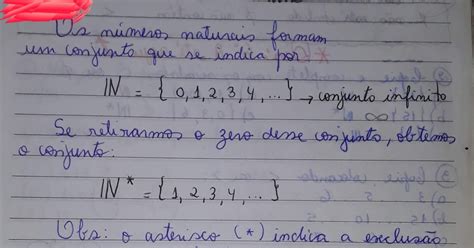 Os números naturais formam
um conjunto que se indica por
IN = { 0, 1, 2, 3, 4, ... } → conjunto infinito
∞
Se retirarmos o zero desse conjunto, obtemos
o conjunto:
IN* = { 1, 2, 3, 4, ... }
Obs: o asterisco (*) indica a exclusão